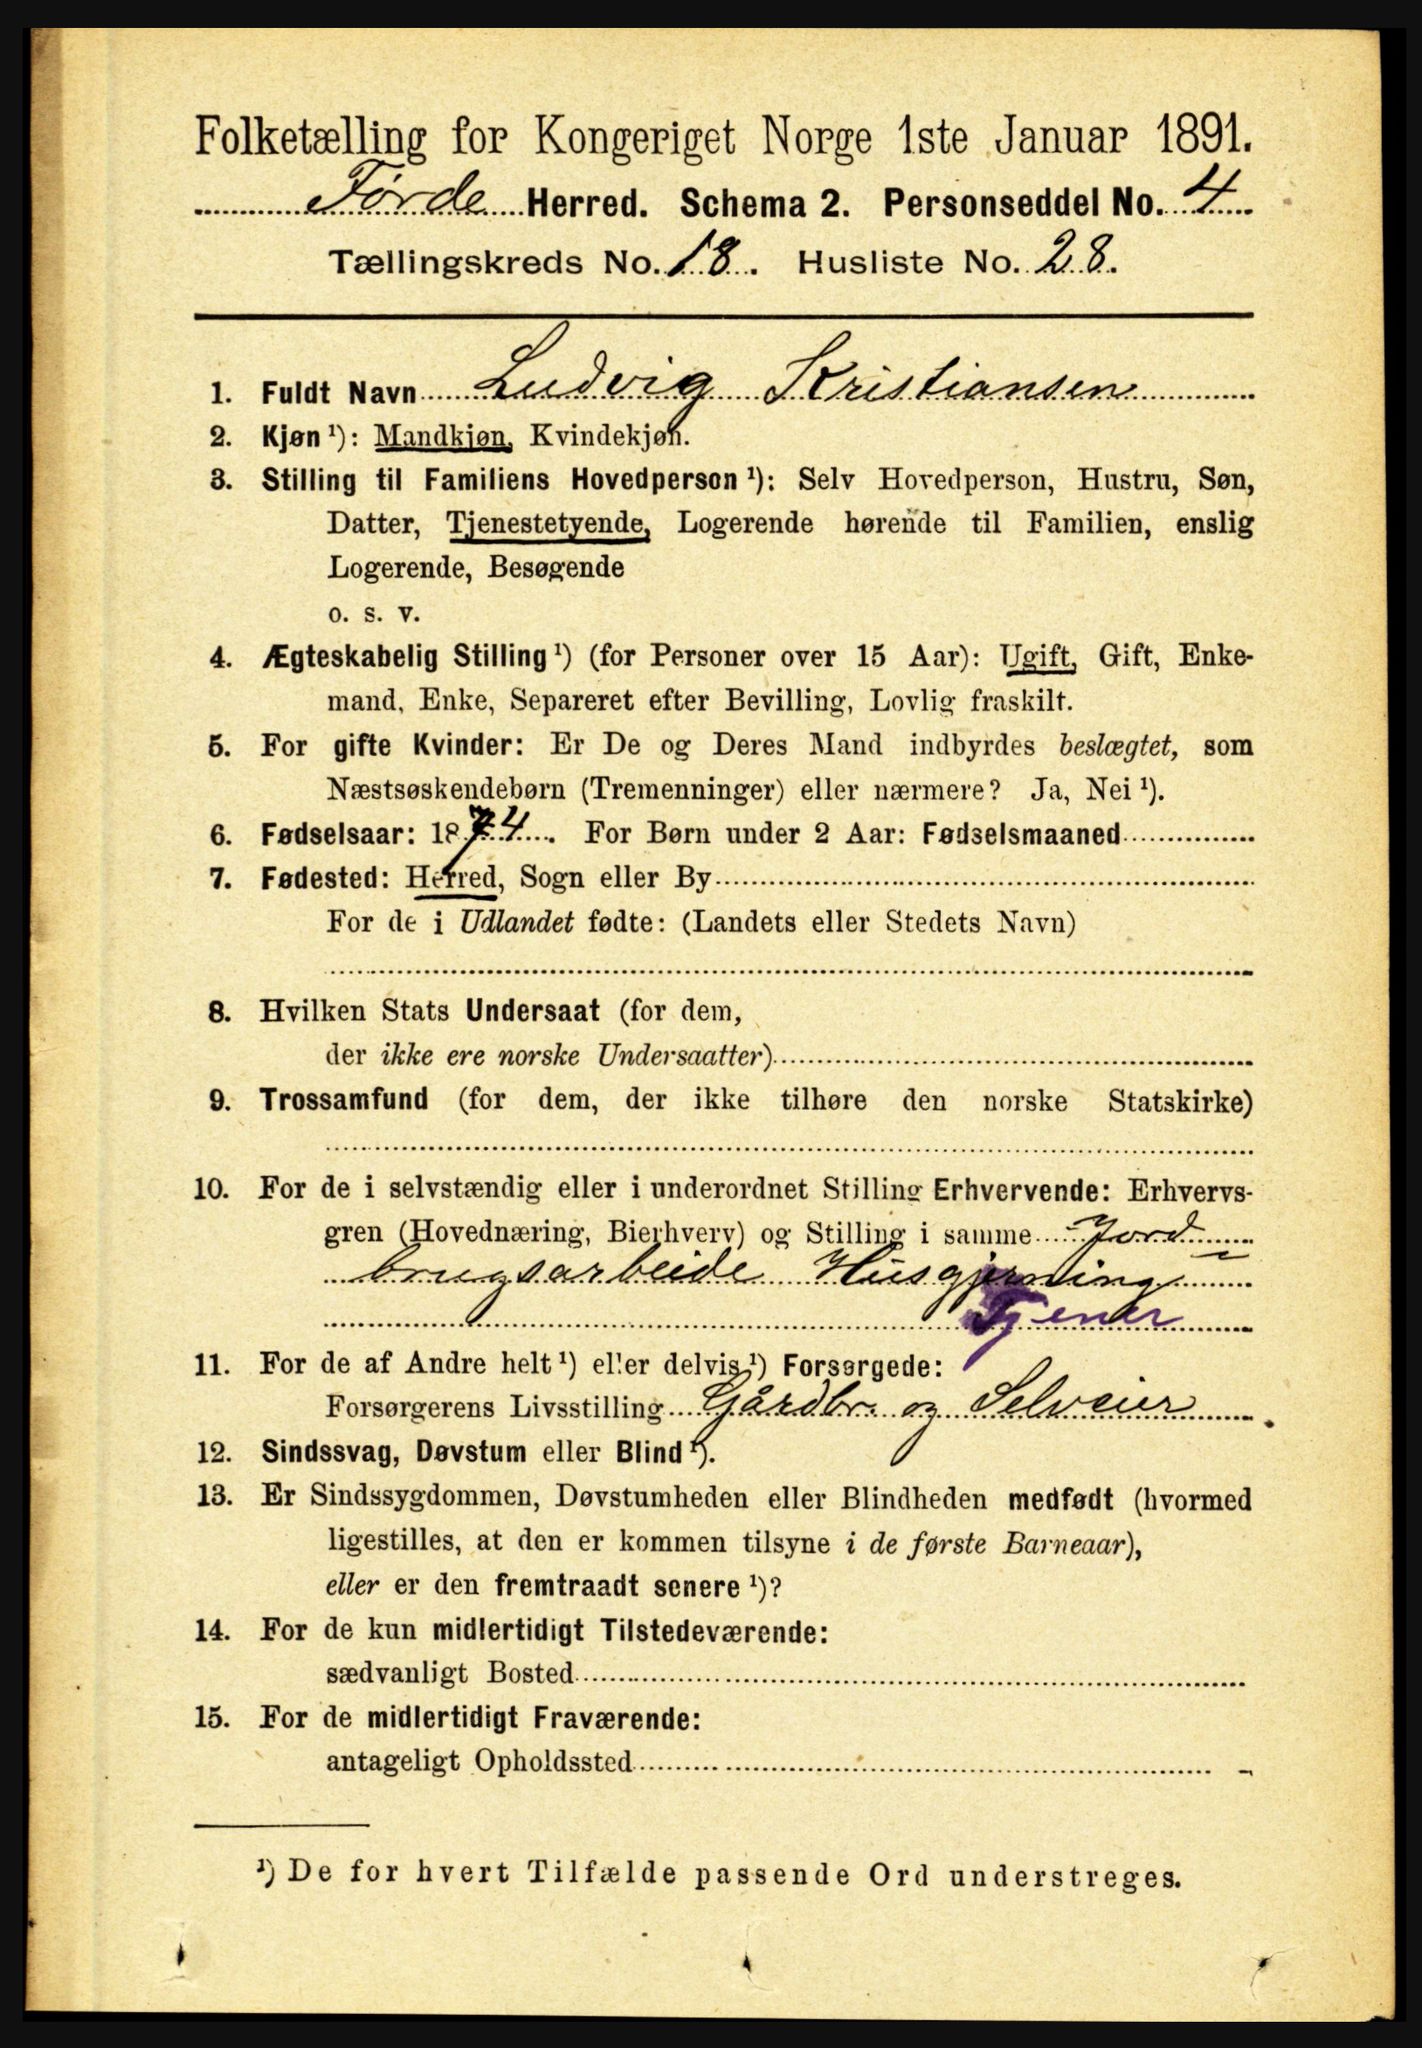 Folketælling for Kongeriget Norge 1ste Januar 1891.
Førde Herred. Schema 2. Personseddel No. 4
Tællingskreds No. 18. Husliste No. 28.
1. Fuldt Navn Ludvig Kristiansen
2. Kjøn ¹): Mandkjøn, Kvindekjøn.
3. Stilling til Familiens Hovedperson ¹): Selv Hovedperson, Hustru, Søn,
Datter, Tjenestetyende, Logerende hørende til Familien, enslig
Logerende, Besøgende
o. s. v.
4. Ægteskabelig Stilling ¹) (for Personer over 15 Aar): Ugift, Gift, Enke-
mand, Enke, Separeret efter Bevilling, Lovlig fraskilt.
5. For gifte Kvinder: Er De og Deres Mand indbyrdes beslægtet, som
Næstsøskendebørn (Tremenninger) eller nærmere? Ja, Nei ¹).
6. Fødselsaar: 1874. For Børn under 2 Aar: Fødselsmaaned
7. Fødested: Herred, Sogn eller By
For de i Udlandet fødte: (Landets eller Stedets Navn)
8. Hvilken Stats Undersaat (for dem,
der ikke ere norske Undersaatter)
9. Trossamfund (for dem, der ikke tilhøre den norske Statskirke)
10. For de i selvstændig eller i underordnet Stilling Erhvervende: Erhvervs-
gren (Hovednæring, Bierhverv) og Stilling i samme Jord-
brugsarbeide Husgjerning
Tjener
11. For de af Andre helt ¹) eller delvis ¹) Forsørgede:
Forsørgerens Livsstilling Gårdbr. og Selveier
12. Sindssvag, Døvstum eller Blind ¹).
13. Er Sindssygdommen, Døvstumheden eller Blindheden medfødt (hvormed
ligestilles, at den er kommen tilsyne i de første Barneaar),
eller er den fremtraadt senere ¹)?
14. For de kun midlertidigt Tilstedeværende:
sædvanligt Bosted
15. For de midlertidigt Fraværende:
antageligt Opholdssted
¹) De for hvert Tilfælde passende Ord understreges.